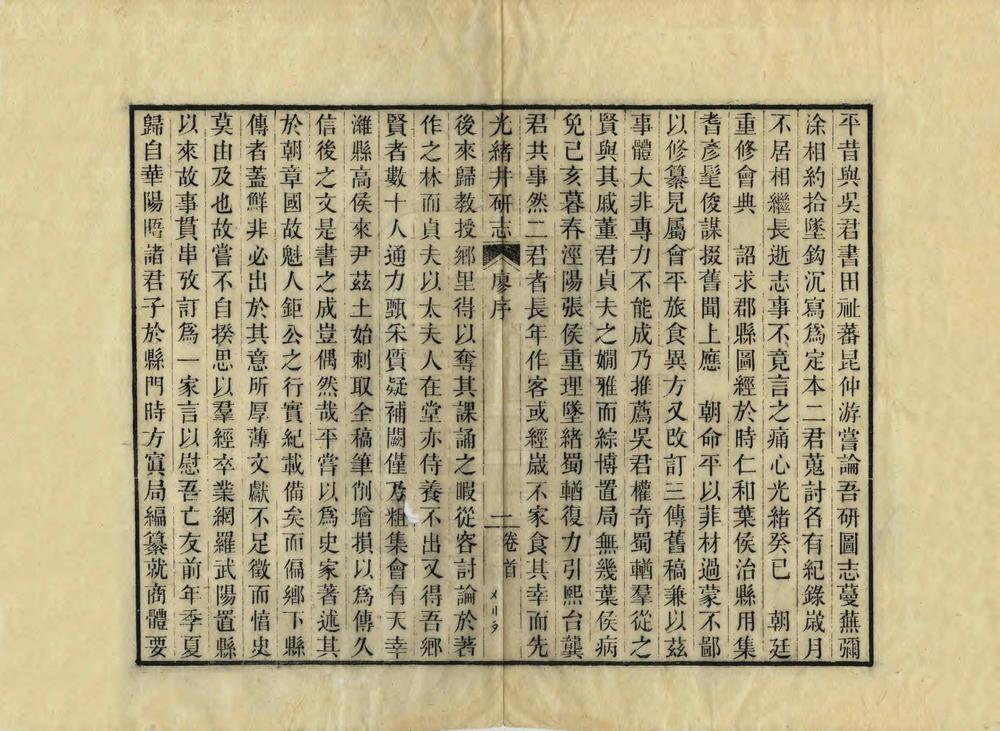 平昔與吳君書田祉蕃昆仲游嘗論吾研圖志蔓蕪彌
涂相約拾墜鈎沉寫爲定本二君蒐討各有紀錄歲月
不居相繼長逝志事不竟言之痛心光緒癸巳　朝廷
重修會典　詔求郡縣圖經於時仁和葉侯治縣用集
耆彥髦俊謀掇舊聞上應　朝命平以菲材過蒙不鄙
以修纂見屬會平旅食異方又改訂三傳舊稿兼以茲
事體大非專力不能成乃推薦吳君權奇蜀輶羣從之
賢與其戚董君貞夫之嫺雅而綜博置局無幾葉侯病
免己亥暮春涇陽張侯重理墜緒蜀輶復力引熙台龔
君共事然二君者長年作客或經歲不家食其幸而先
光緒井研志　廖序　二　卷首
後來歸教授鄉里得以奪其課誦之暇從容討論於著
作之林而貞夫以太夫人在堂亦侍養不出又得吾鄉
賢者數十人通力甄采質疑補闕僅乃粗集會有天幸
濰縣高侯來尹茲土始刺取全稿筆削增損以爲傳久
信後之文是書之成豈偶然哉平嘗以爲史家著述其
於朝章國故魁人鉅公之行實紀載備矣而偏鄉下縣
傳者蓋鮮非必出於其意所厚薄文獻不足徵而愔史
莫由及也故嘗不自揆思以羣經卒業網羅武陽置縣
以來故事貫串攷訂爲一家言以慰吾亡友前年季夏
歸自華陽晤諸君子於縣門時方寘局編纂就商體要